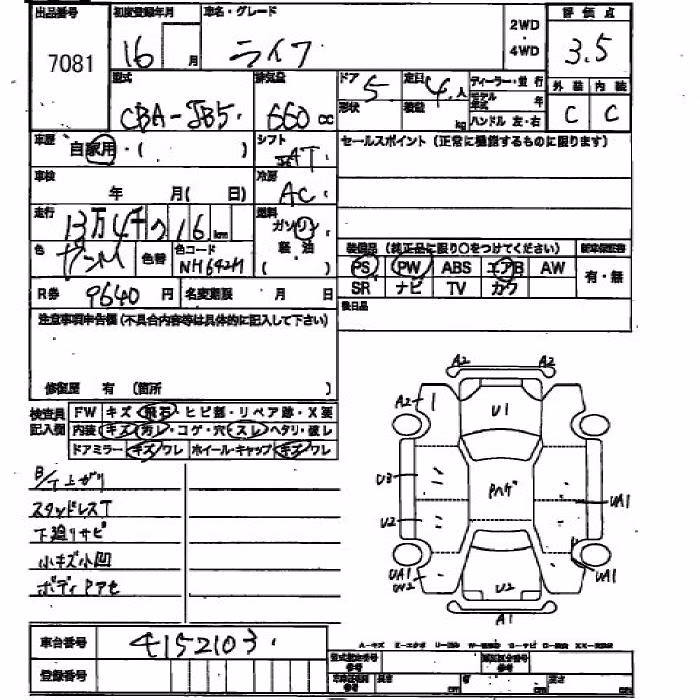 出品番号 初度登録年月 車名・グレード 2WD・4WD 評価点
7081 16 月 ライフ 3.5
型式 排気量 ドア 5 定員 4人 ディーラー・並行
CBA-JB5 660cc 形状 積載 kg モデル年式 年 外装 内装
ハンドル 左・右 C C
車歴 自家用・( ) シフト AT セールスポイント(正常に機能するものに限ります)
車検 年 月( 日) 冷房 AC
走行 13万4千 16 km 燃料 ガソリン
軽油
( )
色 色替 色コード NH642M
装備品(純正品に限り○をつけてください) 新車保証書
PS PW ABS エアB AW 有・無
SR ナビ TV カワ
R券 9640円 名変期限 月 日 後日品
注意事項申告欄(不具合内容等は具体的に記入して下さい)
修復歴 有(箇所 )
検査員記入欄 FW キズ・飛石・ヒビ割・リペア跡・X要
内装 キズ・汚レ・コゲ・穴・スレ・ヘタリ・破レ
ドアミラー キズ・ワレ ホイール・キャップ キズ・ワレ
スタッドレスT
下廻りサビ
小キズ小凹
A2 A2
A2 U1
U3 Pハゲ UA1
U2
UA1 UA1
U2
A1
車台番号 4152103
登録番号
型式指定番号 類別区分番号
長さ cm 巾 cm 高さ cm